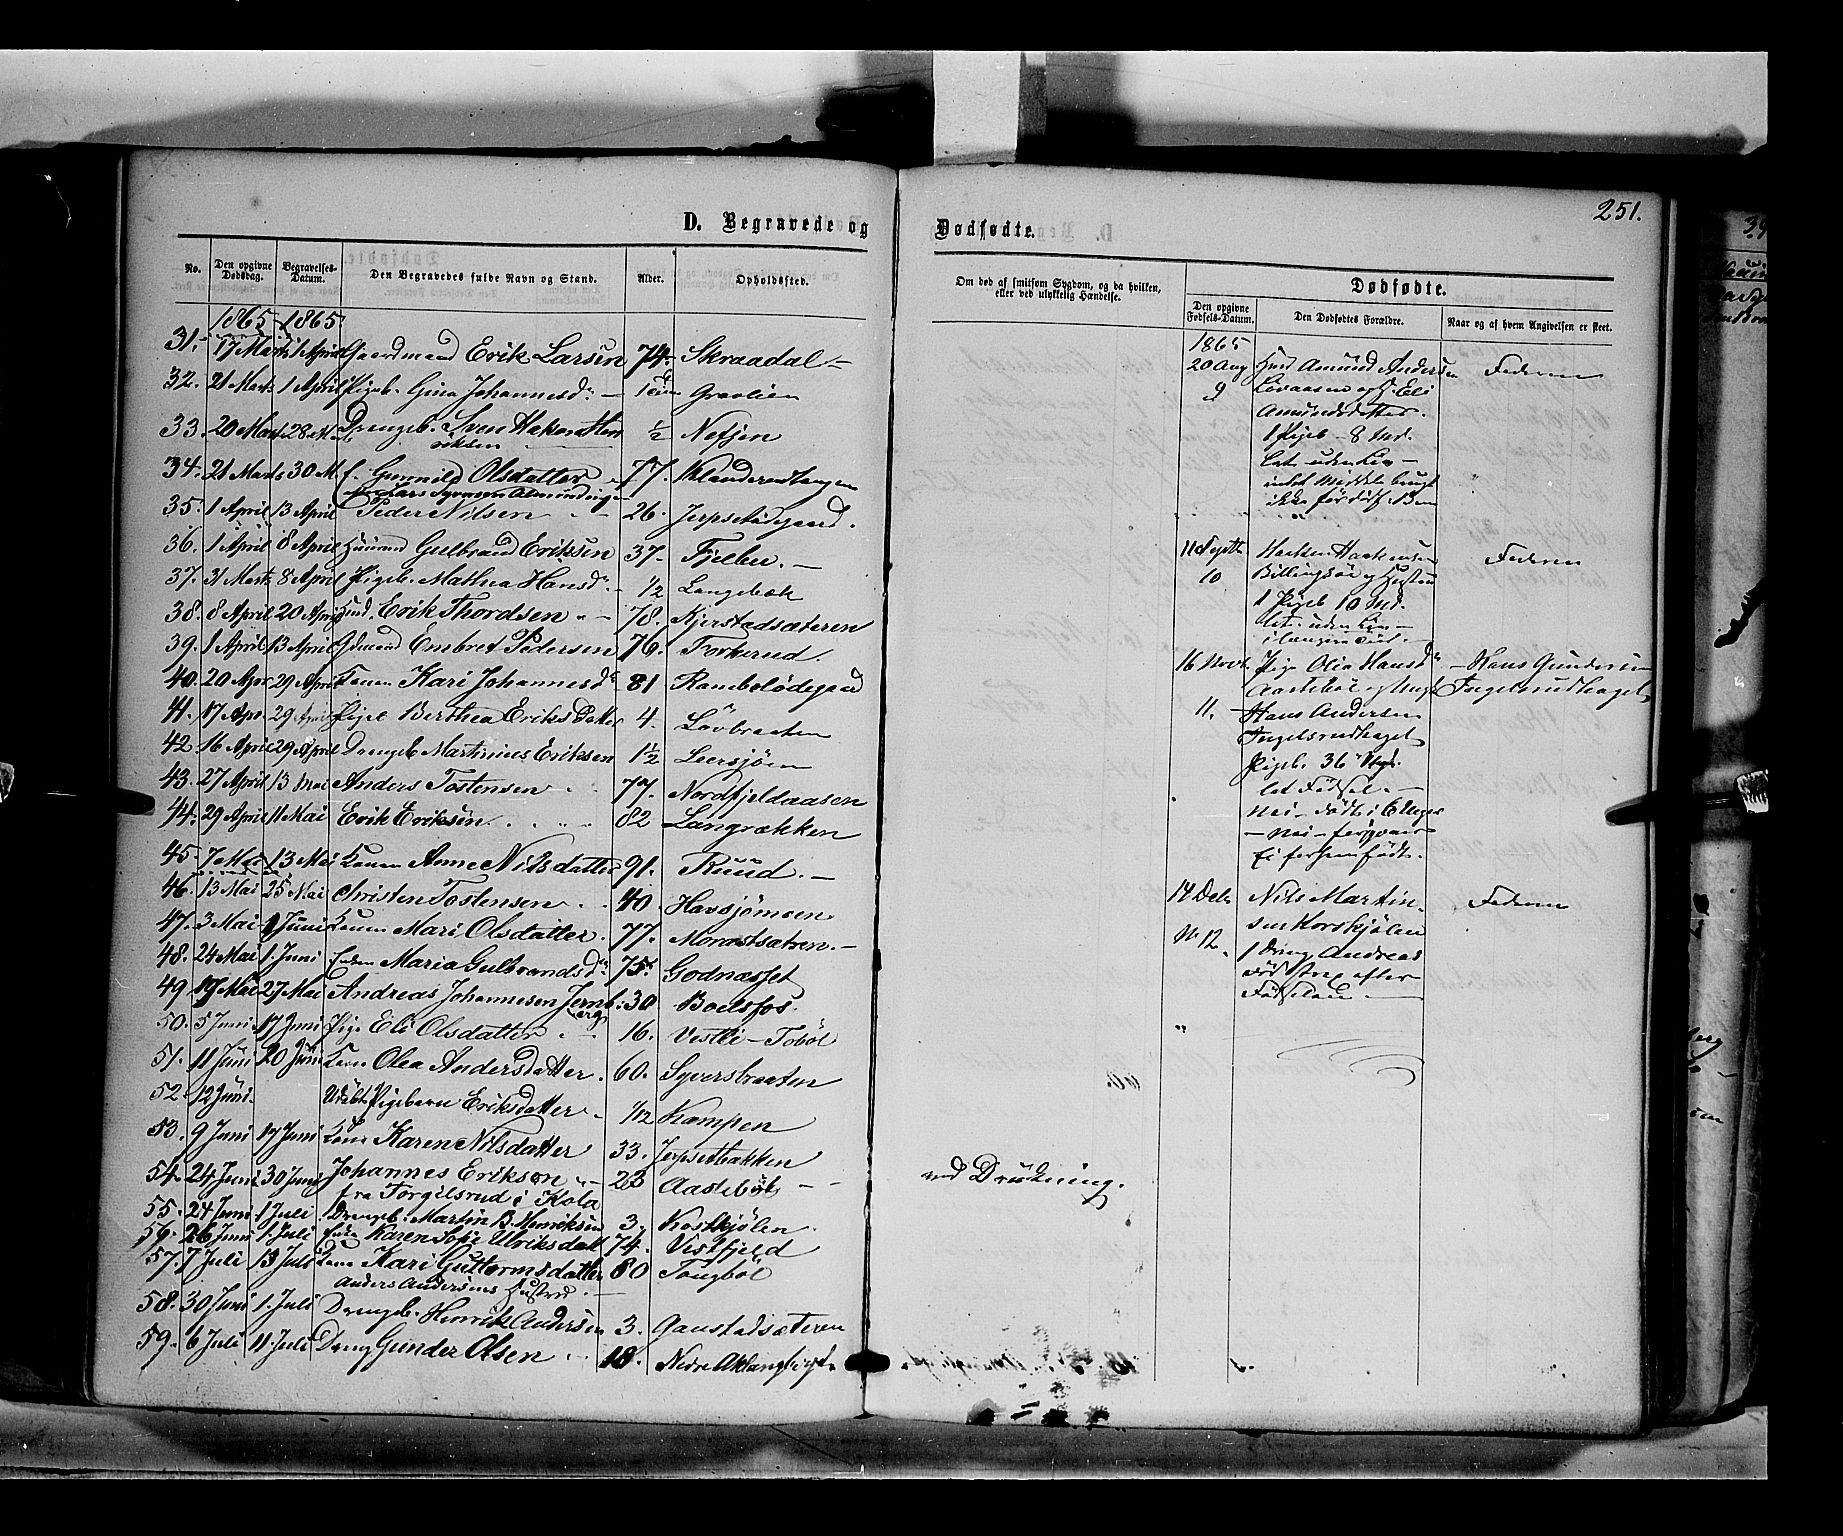 251.
D. Begravede og
Dødfødte.
No.
Den opgivne Dødsdag.
Begravelses-Datum.
Den Begravedes fulde Navn og Stand.
Alder.
Opholdssted.
Om død af smitsom Sygdom, og da hvilken,
eller ved ulykkelig Hændelse.
Dødfødte.
Den opgivne Fødsels-Datum.
Den Dødfødtes Forældre.
Naar og af hvem Angivelsen er skeet.
1865 1865
31. 17 Marts 1 April Gaardmand Erik Larsen 74. Skraadal
32. 21 Marts 1 April Pigeb. Gina Johannesd. Graalien
33. 20 Marts 28 M. Drengeb. Sven ½ Nefjen
34. 21 Marts 30 M. Gunnild Olsdatter 77.
35. 1 April 13 April Peder Nilsen 26. Jerpsetødegaard.
36. 1 April 8 April Gulbrand Eriksen 37.
37. 31 Marts 8 April Pigeb. Mathea Hansd. ½ Langebæk
38. 8 April 20 April Erik Thordsen 78. Kjerstadsæteren
39. 1 April 13 April Gdmand Embret Pedersen 76. Forkerud.
40. 20 Apr 29 April Konen Kari Johannesd. 81
41. 17 Apr. 29 April Pigeb Berthea Eriksdatter 4. Løvbraaten
42 16 April 29 April Drengeb Martinius Eriksen 1½ Leersjøen
43. 27 April 13 Mai Anders Tostensen 77. Nordfjeldaasen
44. 29 April 11 Mai Erik Eriksen. 82 Langrækken
45. 7 Mai 13 Mai Konen Anne Nilsdatter 91. Ruud.
46. 13 Mai 25 Mai Christen Tostensen 40 Havsjømoen
47. 3 Mai 1 Juni Konen Mari Olsdatter. 77. Morastsætren.
48. 24 Mai 1. Juni Enken Maria Gulbrandsd. 75. Godnæsset
49 17 Mai 27 Mai Andreas Johannesen Jernberg 30
50. 5 Juni 17 Juni Pige Eli Olsdatter 16. Vestli-Tobøl
51. 11 Juni 20 Juni Kone Olea Andersdatter. 60. Syversbraaten
52. 12 Juni. Udøbt Pigebarn Eriksdatter 1/12 Kampen
53. 9 Juni 17 Juni Kone Karen Nilsdatter 33. Jerpsetbakken
54. 24 Juni 30 Juni Johannes Erikson 23 Aastebøl ved Drukning.
fra Torgilsrud i Kola
55. 24 Juni 1 Juli Drengeb. Martin B. Henriksen 3.
56. 26 Juni 1. Juli Enke Karen Sofie Ulriksdatt 74. Vestfjeld
57. 7 Juli 13 Juli Kone Kari Guttormsdatter 80 Tongbøl
Anders Andersens Hustru.
58. 30 Juni 1. Juli Drengeb. Henrik Andersen 3. Gaustadsæteren
59. 6 Juli 11. Juli Dreng Gunder Olsen 18.
1865
20 Aug Husd Amund Andersen Faderen
9 Løvaasen og H. Eli
Amundsdatter.
1 Pigeb - 8 Md.
11 Septb Faderen
10 Billingsøe og Hustru
1 Pigeb 10 Md.
16 Novb. Pige Olia Hansd Hans Gundersen
Ingelsrudhaget
11. Hans Andersen
Ingelsrudhaget
Pigeb. 36 Uger
let Fødsel.
14 Decb Nils Martin- Faderen
N. 12. sen
1 Dreng Andreas
død strax efter
Fødselen